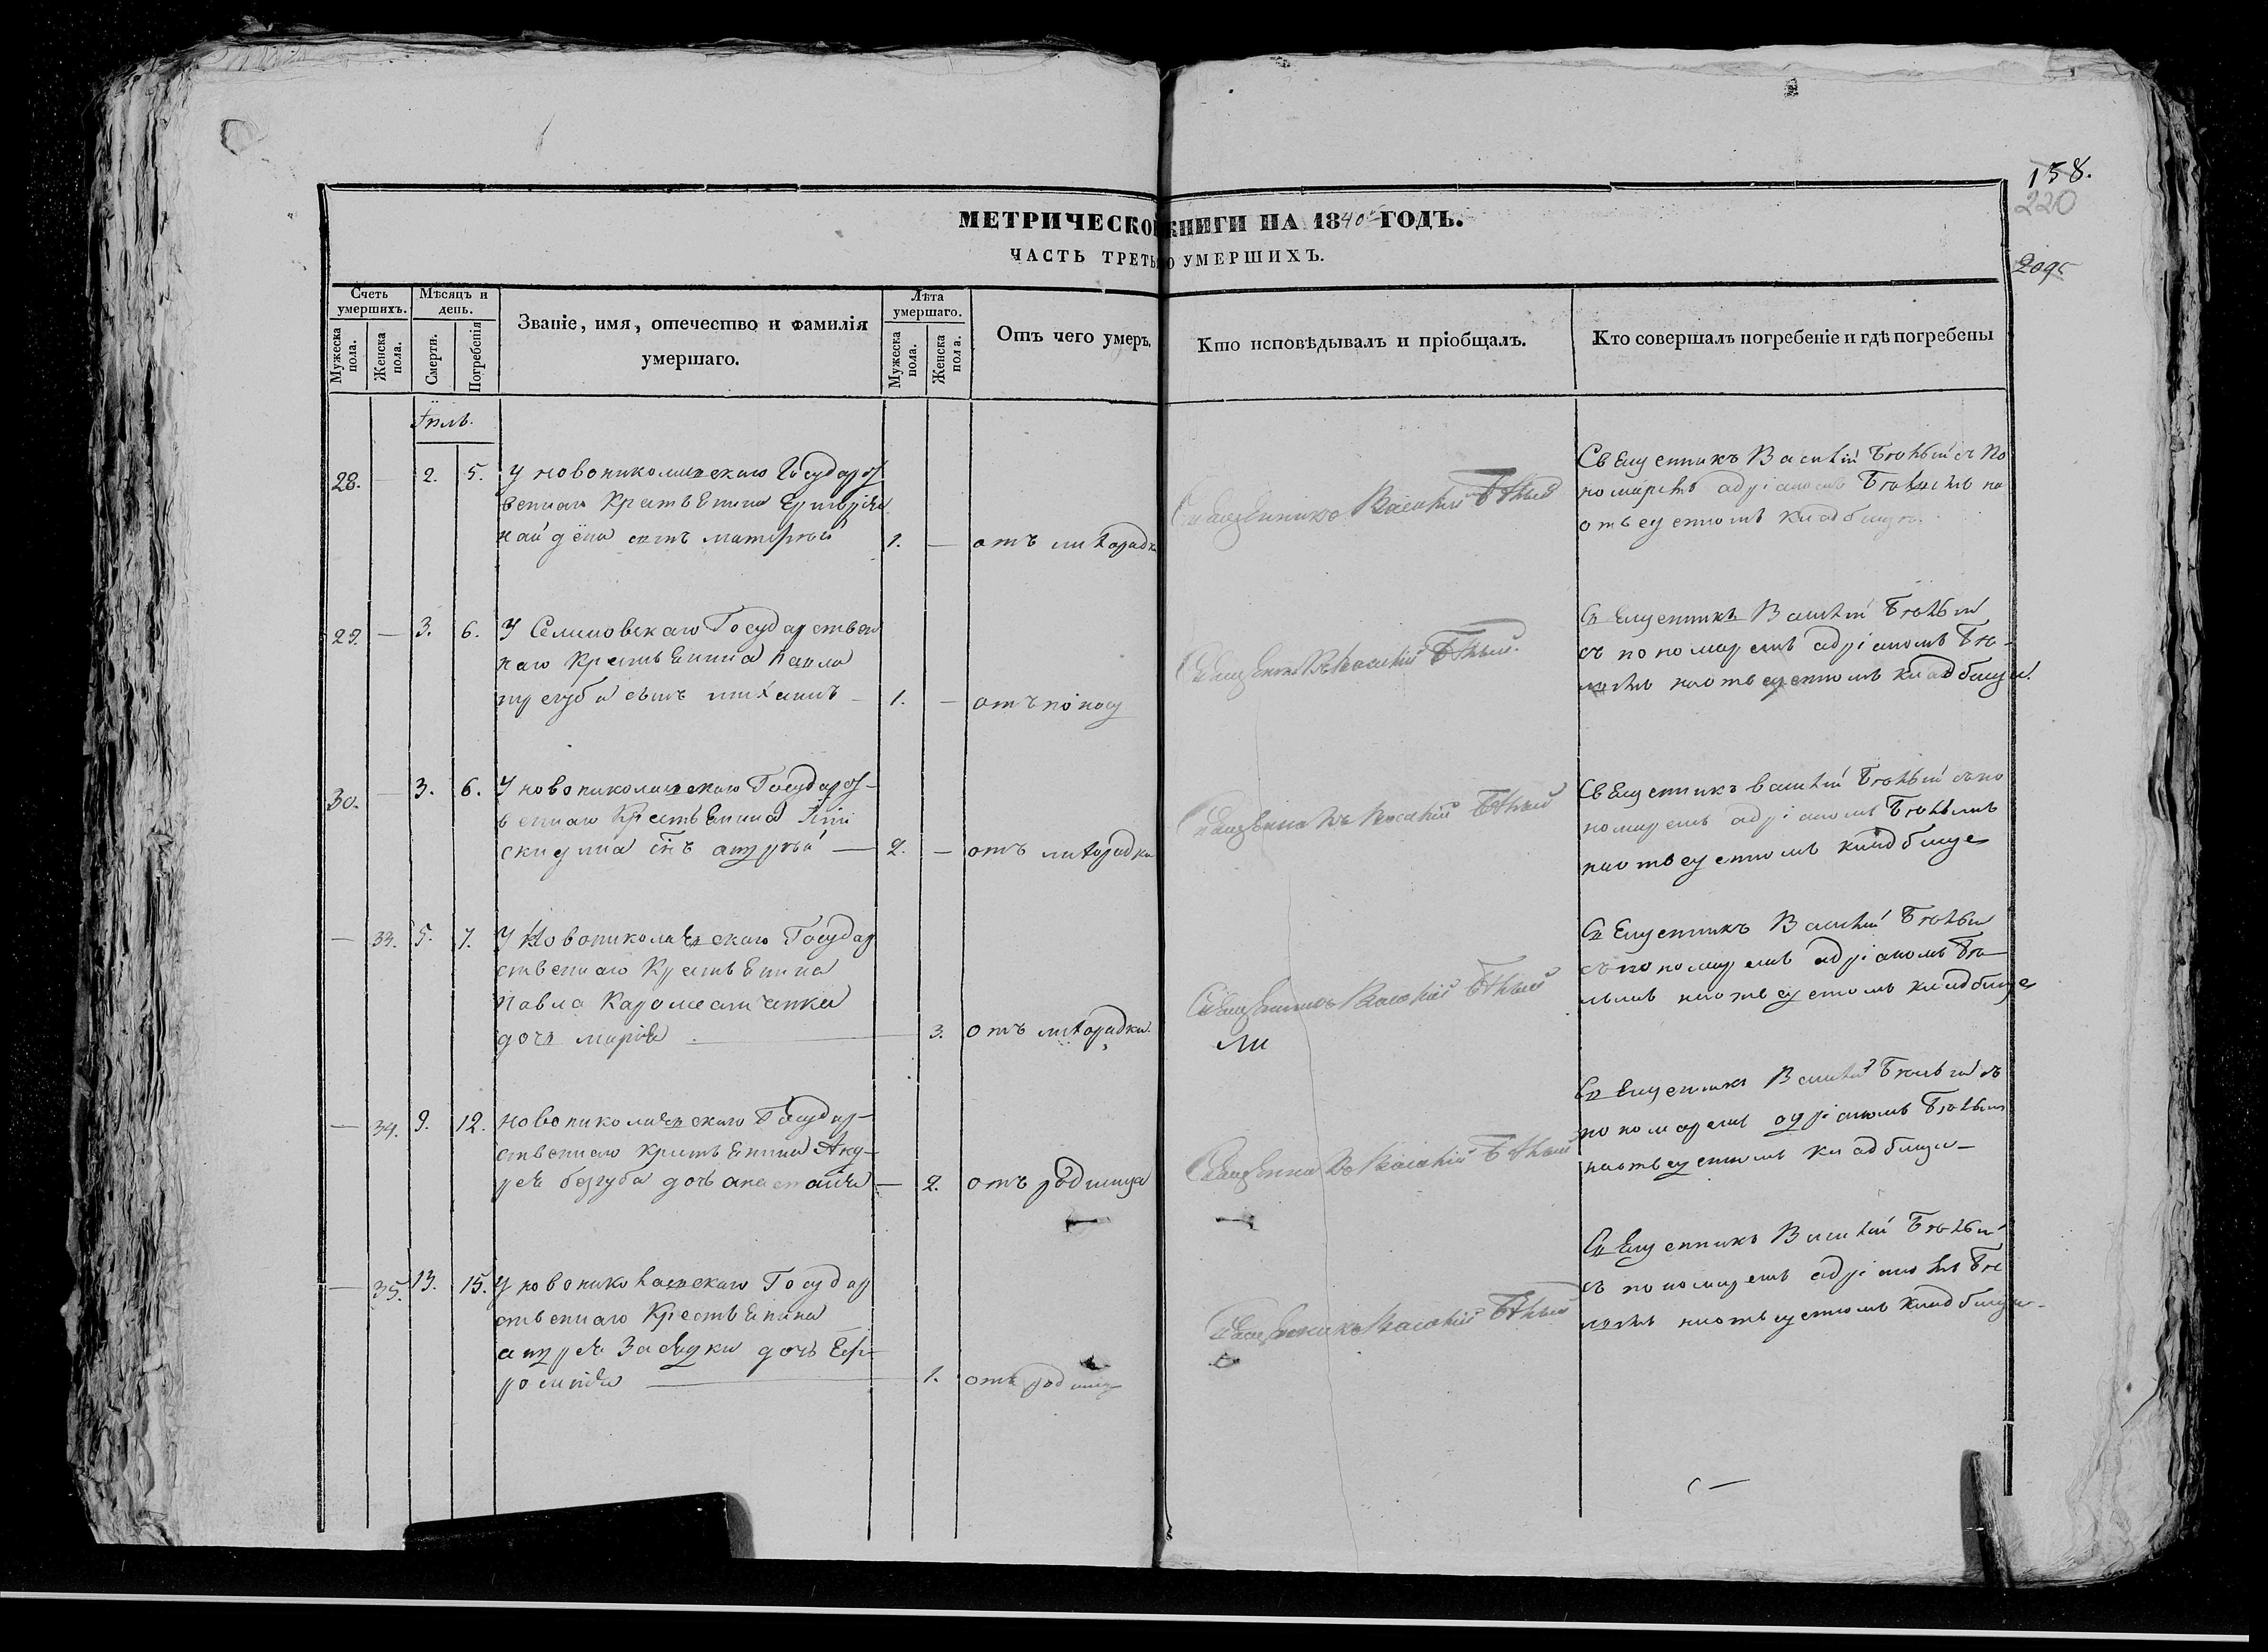 158.
220
МЕТРИЧЕСКОЙ КНИГИ НА 1840 ГОДЪ.
ЧАСТЬ ТРЕТЬЯ О УМЕРШИХЪ.
Счетъ умершихъ.
Мужеска пола.
Женска пола.
Мѣсяцъ и день.
Смерти.
Погребенія
Званіе, имя, отечество и фамилія
умершаго.
Лѣта умершаго.
Мужеска пола.
Женска пола.
Отъ чего умеръ.
Кто исповѣдывалъ и пріобщалъ.
Кто совершалъ погребеніе и гдѣ погребены
28. — 2. 5. У новониколаевскаго Государст
веннаго Крестьянина Григорія
найдена сынъ матфей 1. — отъ лихорадк
Священникъ Василій Бѣлый
Священникъ Василій Бѣлый съ по
номаремъ адріаномъ Бѣлымъ на
отведенномъ кладбищѣ.
29. — 3. 6. У Селиновскаго Государствен
наго Крестьянина павла
трегуба сынъ михаилъ — 1. — отъ поносу
Священникъ Василій Бѣлый.
Священникъ Василій Бѣлый
съ пономаремъ адріаномъ Бѣ-
лымъ на отведенномъ кладбищи
30. — 3. 6. У новониколаевскаго Государст-
веннаго Крестьянина
сынъ андрей — 2. — отъ лихорадки
Священникъ Василій Бѣлый
Священникъ василій Бѣлый съ по
номаремъ адріаномъ Бѣлымъ
на отведенномъ кладбище
— 33. 5. 7. У Новониколаевскаго Государ
ственнаго Крестьянина
павла
дочь марія — 3. отъ лихорадки.
Священникъ Василій Бѣлый
Священникъ Василій Бѣлый
съ пономаремъ адріаномъ Бѣ—
лымъ на отведенномъ кладбище
— 34. 9. 12. новониколаевскаго Государ—
ственнаго крестьянина Анд-
рея безгуба дочь анастасія — 2. отъ родимца
Священникъ Василій Бѣлый
Священникъ Василій Бѣлый съ
пономаремъ адріаномъ Бѣлымъ
на отведенномъ кладбищи—
— 35. 13. 15. У новониколаевскаго Государ
ственнаго Крестьянина
андрея дочь Еф-
росинія — 1. отъ родимца
Священникъ Василій Бѣлый
Священникъ Василій Бѣлый
съ пономаремъ адріаномъ Бѣ
лымъ на отведенномъ кладбищи